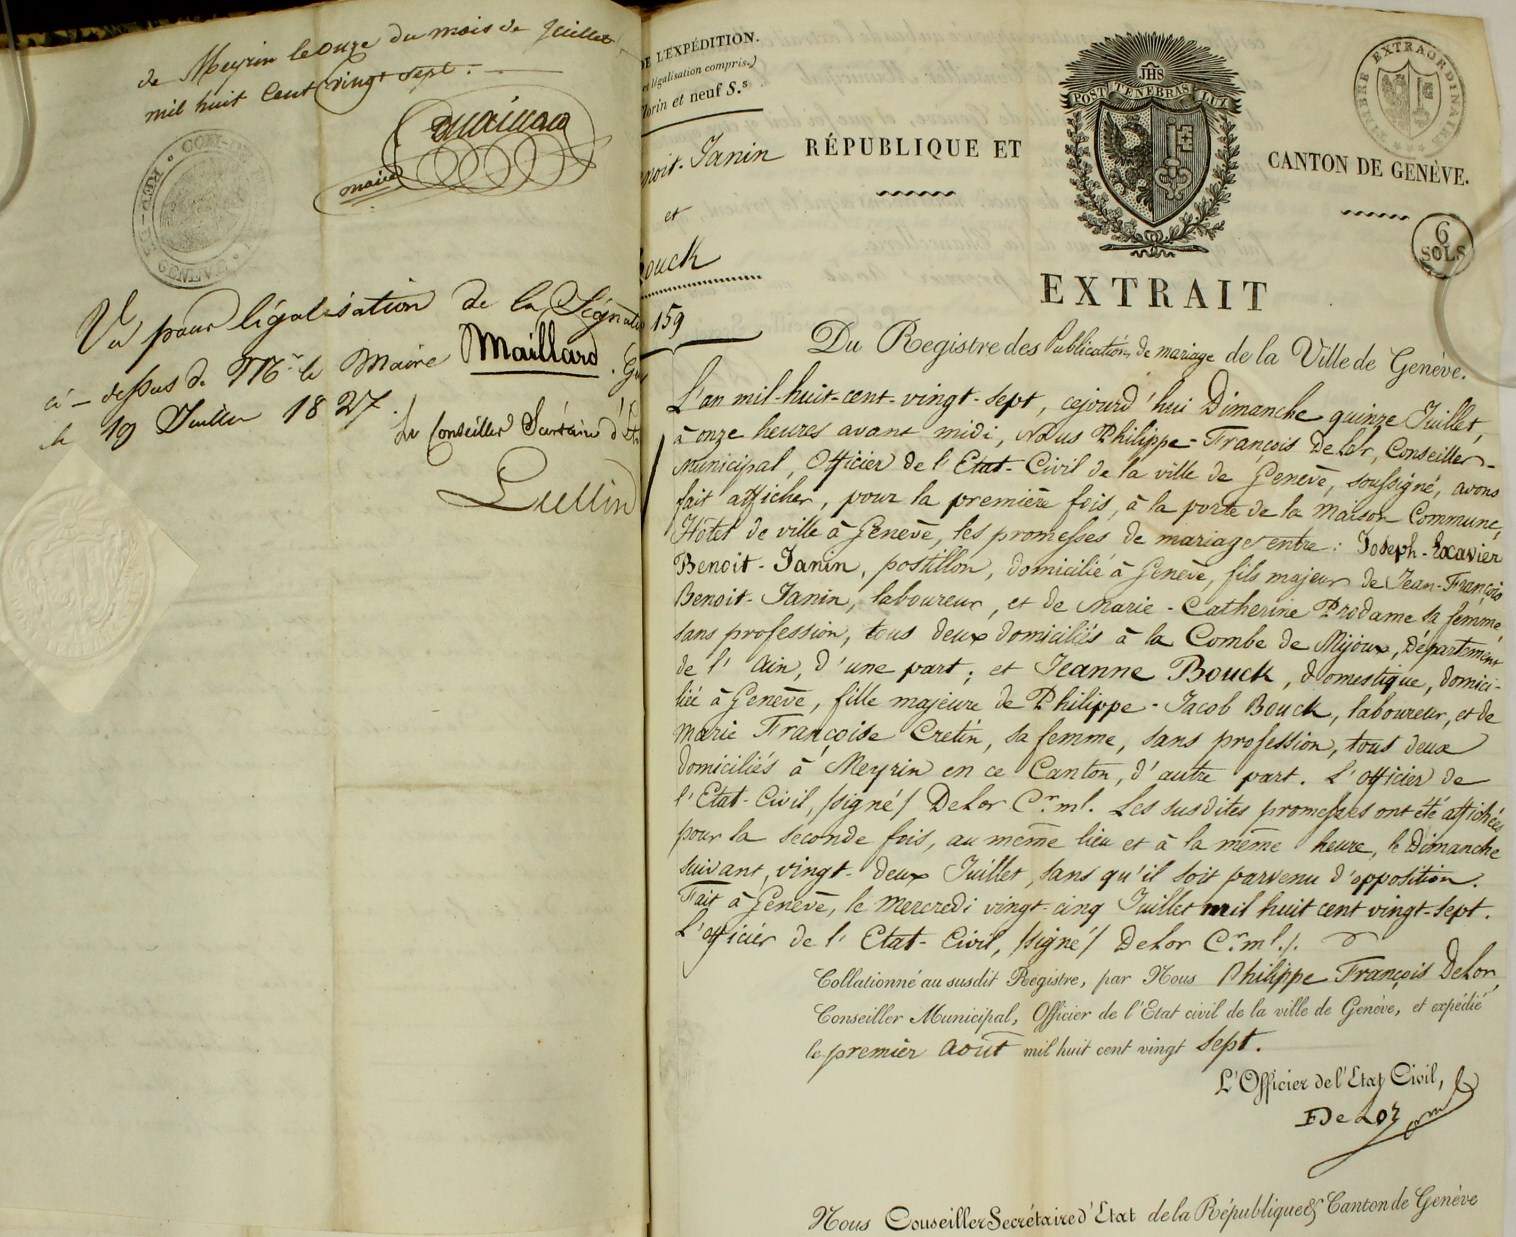 de Meyrin le onze du mois de Juillet
mil huit Cent vingt sept.
Maillard
maire
GENÈVE
Vu pour légalisation de la Signatu
ci-dessus de Mr. le Maire Maillard. Ge
le 19 Juillet 1827.
Le Conseiller Secrétaire d'Et
Lullin
DE L'EXPÉDITION.
légalisation compris.)
florin et neuf S.s
noit-Janin
et
Bouck
159
JHS
POST TENEBRAS LUX
TIMBRE EXTRAORDINAIRE
RÉPUBLIQUE ET
CANTON DE GENÈVE.
6
SOLS
EXTRAIT
Du Registre des Publications de mariage de la Ville de Genève.
L'an mil-huit-cent-vingt-sept, cejourd'hui Dimanche quinze Juillet,
à onze heures avant midi, Nous Philippe-François DeLor, Conseiller-
Municipal, Officier de l'Etat-Civil de la ville de Genève, soussigné, avons
fait afficher, pour la première fois, à la porte de la Maison Commune,
Hôtel de ville à Genève, les promesses de mariage entre: Joseph-Exavier
Benoit-Janin, postillon, domicilié à Genève, fils majeur de Jean-François
Benoit-Janin, laboureur, et de Marie-Catherine Prodame sa femme,
sans profession, tous deux domiciliés à la Combe de Mijoux, Département
de l'Ain, d'une part; et Jeanne Bouck, domestique, domici-
liée à Genève, fille majeure de Philippe-Jacob Bouck, laboureur, et de
Marie Françoise Cretin, sa femme, sans profession, tous deux
domiciliés à Meyrin en ce Canton, d'autre part. L'officier de
l'Etat-Civil, /signé/ DeLor Cr. ml. Les susdites promesses ont été affichées
pour la seconde fois, au même lieu et à la même heure, le Dimanche
suivant, vingt-deux Juillet, sans qu'il soit parvenu d'opposition.
Fait à Genève, le Mercredi vingt-cinq Juillet mil huit cent vingt-sept.
L'officier de l'Etat-Civil, /signé/ DeLor Cr. ml.
Collationné au susdit Registre, par Nous Philippe François DeLor,
Conseiller Municipal, Officier de l'Etat civil de la ville de Genève, et expédié
le premier août mil huit cent vingt sept.
L'Officier de l'Etat Civil,
FDeLor
Nous Conseiller Secrétaire d'Etat de la République & Canton de Genève